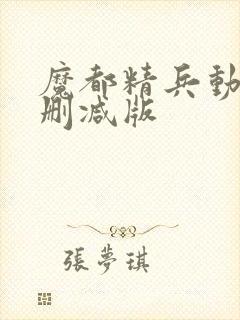 魔都精兵動
删减版
張夢琪